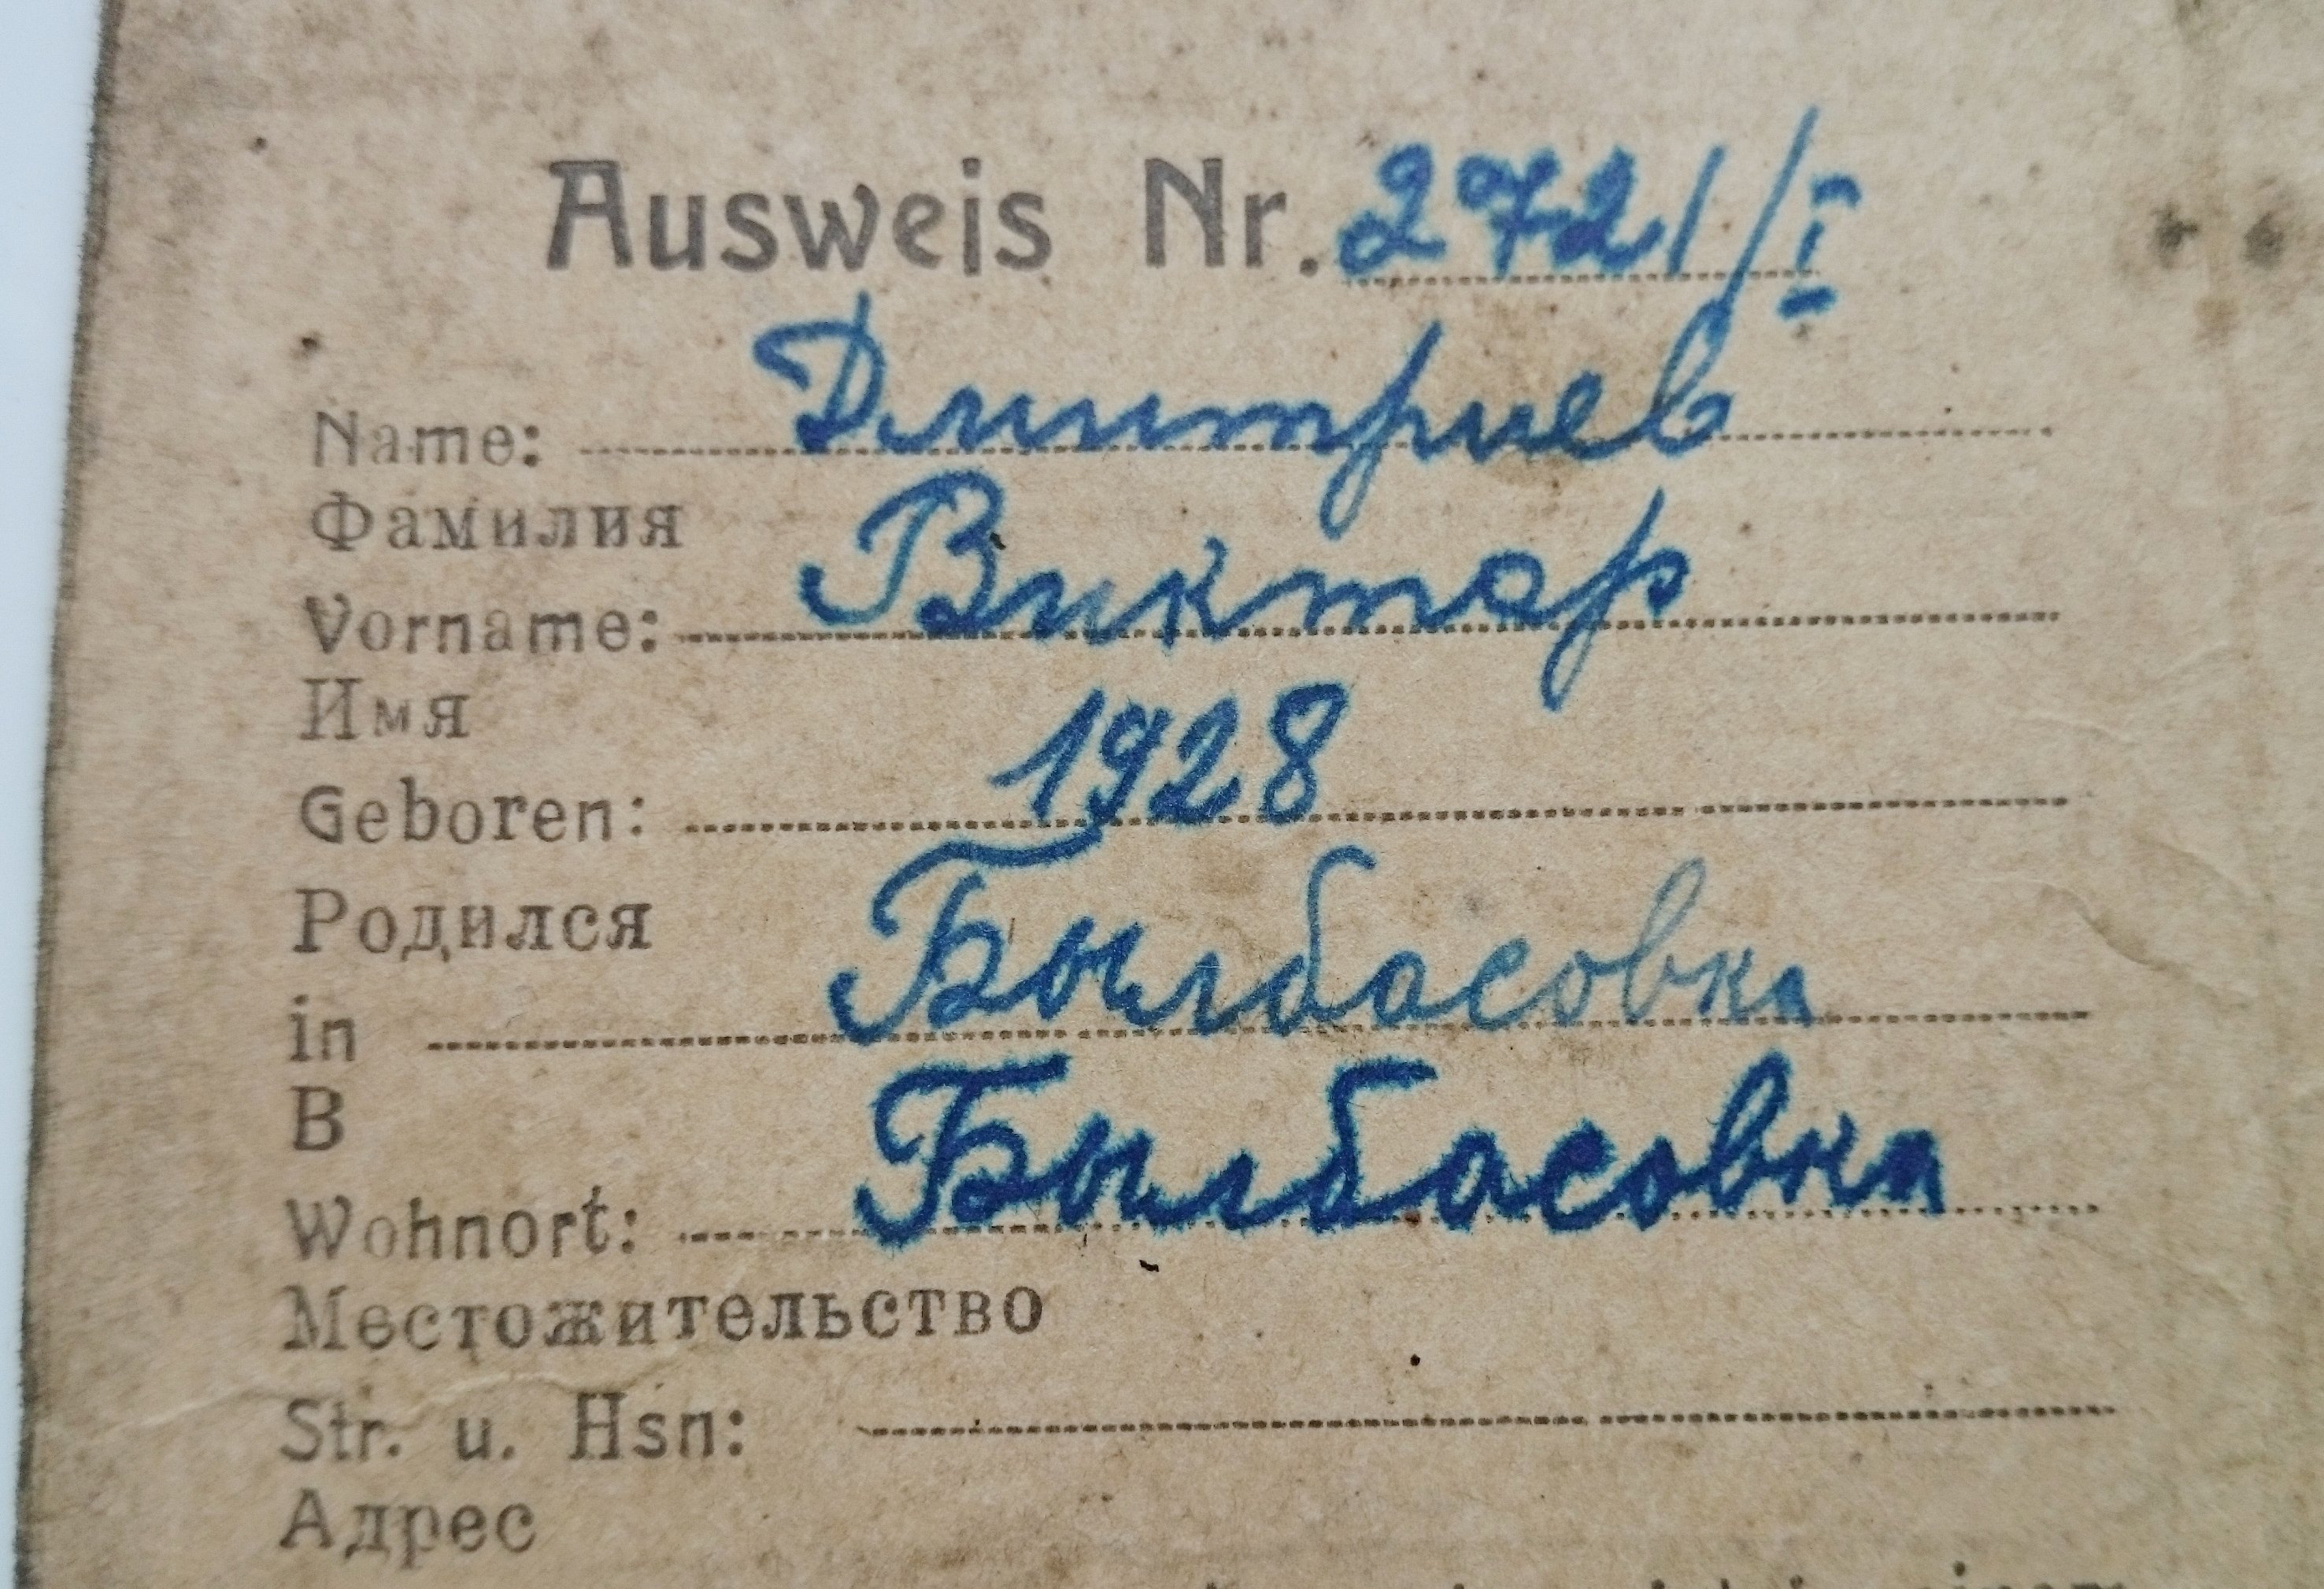 Ausweis Nr. 2721/I
Name: Дмитриев
Фамилия
Vorname: Виктор
Имя
Geboren: 1928
Родился
in Былбасовка
В
Wohnort: Былбасовка
Местожительство
Str. u. Hsn:
Адрес